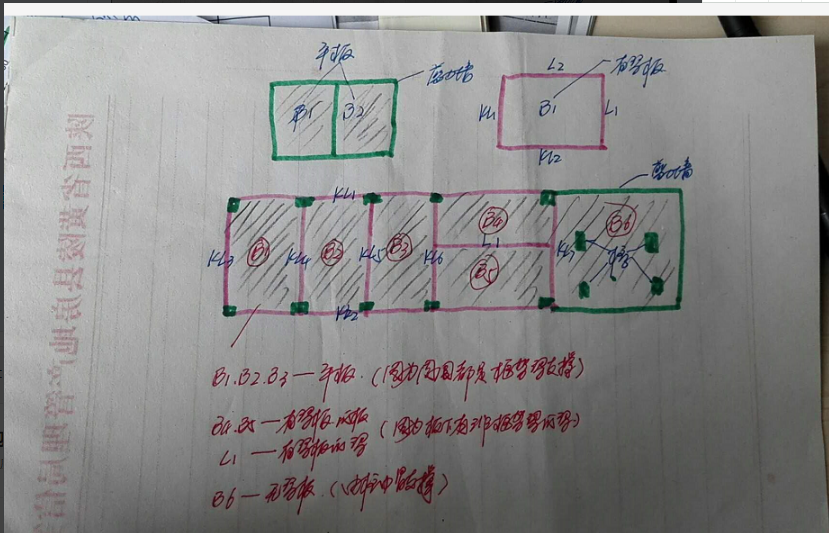 平板
剪力墙
B1 B2
L2
有梁板
KL1 B1 L1
KL2
剪力墙
KL1
KL3 B1 KL4 B2 KL5 B3 KL6 B4 L1 B5 KL7 B6
KL2
B1.B2.B3—平板.(因为周围都是框架梁支撑)
B4.B5—有梁板的板
(因为板下有非框架梁的梁)
L1—有梁板的梁
B6—无梁板.(支撑)